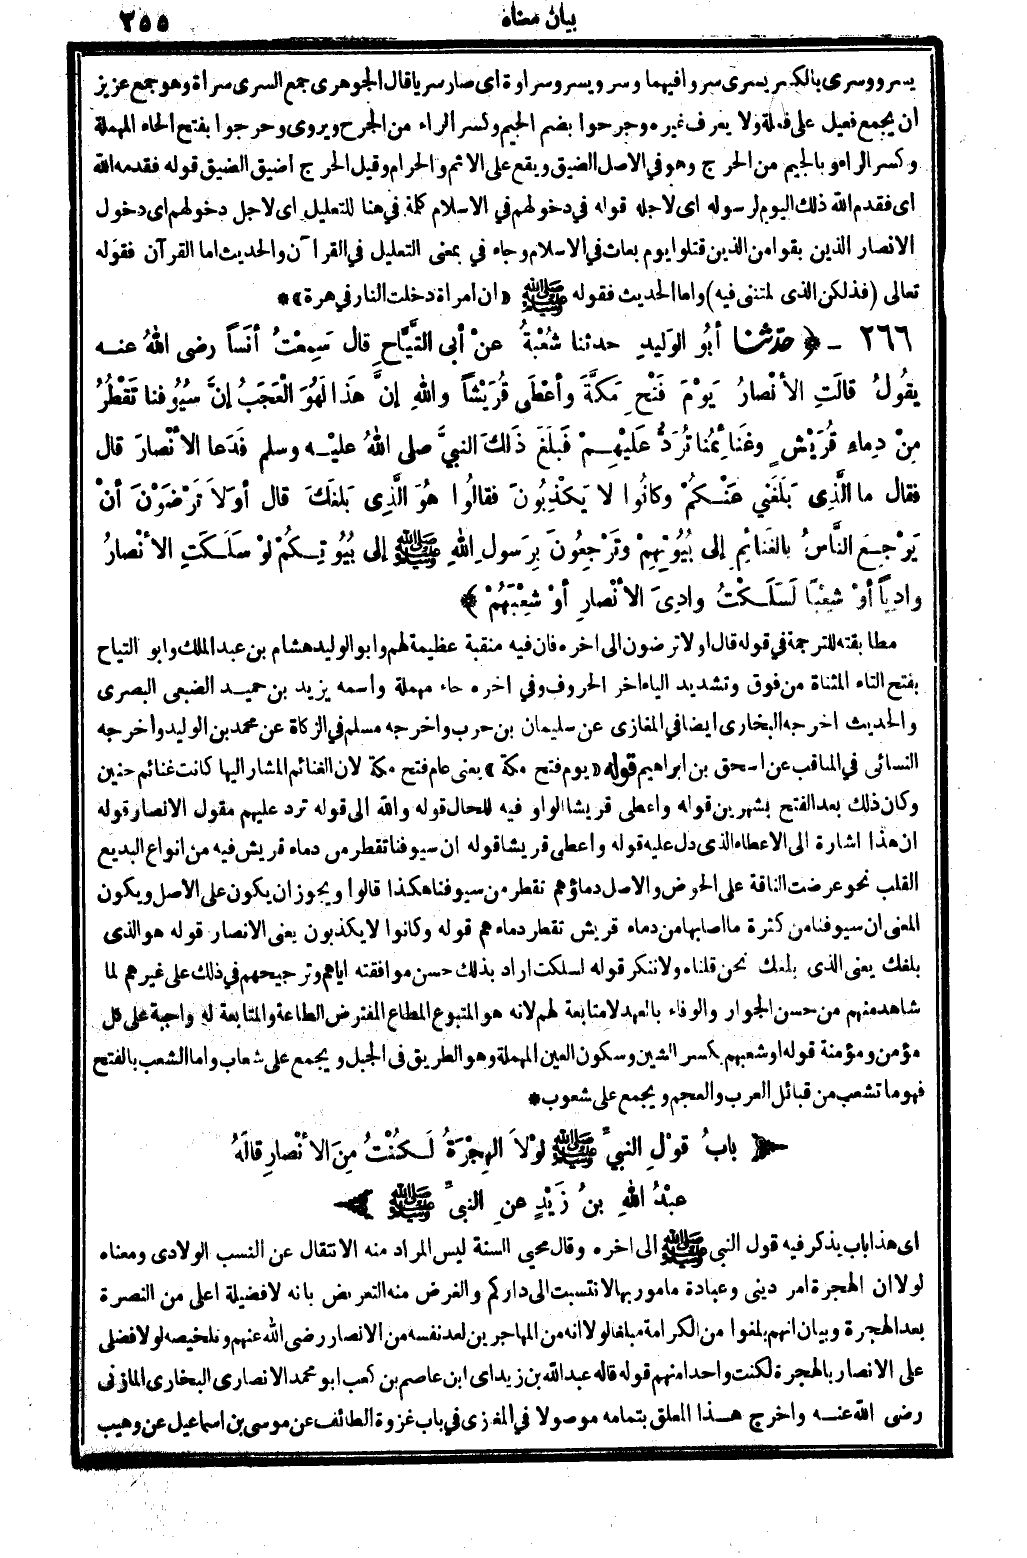 بيان معناه ٢٥٥
يسرو وسرى بالكسر يسرى سروا فيهما وسرو يسرو سراوة اى صار سريا قال الجوهرى جمع السرى سراة وهو جمع عزيز
ان يجمع فعيل على فعلة ولا يعرف غيره وجرحوا بضم الجيم وكسر الراء من الجرح ويروى وحرجوا بفتح الحاء المهملة
وكسر الراء وبالجيم من الحرج وهو في الاصل الضيق ويقع على الاثم والحرام وقيل الحرج اضيق الضيق قوله فقدمه الله
اى فقدم الله ذلك اليوم لرسوله اى لاجله قوله في دخولهم في الاسلام كلمة في هنا للتعليل اى لاجل دخولهم اى دخول
الانصار الذين بقوا من الذين قتلوا يوم بعاث في الاسلام وجاء في بمعنى التعليل في القرآن والحديث اما القرآن فقوله
تعالى (فذلكن الذى لمتننى فيه) واما الحديث فقوله ﷺ «ان امراة دخلت النار في هرة» *
٢٦٦ - ﴿ حدّثنا أبُو الوَليدِ حدثنا شُعْبَةُ عنْ أبى التَّيَّاحِ قال سَمِعْتُ أنَساً رضى اللهُ عنـه
يقُولُ قالَتِ الأنْصارُ يَوْمَ فَتْحِ مَكَّةَ وأعْطَى قُرَيْشاً واللهِ إنَّ هَذا لهُوَ الْعَجَبُ إنَّ سُيُوفَنا تَقْطُرُ
مِنْ دِماءِ قُرَيْشٍ وغَنائِمُنا تُرَدُّ عَلَيْهِـمْ فَبَلَغَ ذَلكَ النبيَّ صلى اللهُ عليْـه وسلم فَدَعا الأنْصارَ قال
فقال ما الَّذِى بَلَغَنِي عَنْـكُمْ وكانُوا لا يَكْذِبُونَ فقالُوا هُوَ الَّذِى بَلغَكَ قال أوَلاَ تَرْضَوْنَ أنْ
يَرْجِـعَ النَّاسُ بالغَنائِمِ إلى بُيُوتِهِمْ وتَرْجِعُونَ بِرَسولِ اللهِ ﷺ إلى بُيُوتِـكُمْ لوْ سَلَـكَتِ الأنْصارُ
وادِياً أوْ شِعْبًا لَسَلَـكْتُ وادِىَ الأنْصارِ أوْ شِعْبَهُمْ ﴾ *
مطابقته للترجمة في قوله قال اولا ترضون الى اخره فان فيه منقبة عظيمة لهم وابو الوليد هشام بن عبد الملك وابو التياح
بفتح التاء المثناة من فوق وتشديد الياء اخر الحروف وفي اخره حاء مهملة واسمه يزيد بن حميـد الضبعى البصرى
والحديث اخرجه البخارى ايضا في المغازى عن سليمان بن حرب واخرجه مسلم في الزكاة عن محمد بن الوليد واخرجه
النسائى في المناقب عن اسحق بن ابراهيم قوله «يوم فتح مكة» يعنى عام فتح مكة لان الغنائم المشار اليها كانت غنائم حنين
وكان ذلك بعد الفتح بشهرين قوله واعطى قريشا الواو فيه للحال قوله والله الى قوله ترد عليهم مقول الانصار قوله
ان هذا اشارة الى الاعطاء الذى دل عليه قوله واعطى قريشا قوله ان سيوفنا تقطر من دماء قريش فيه من انواع البديع
القلب نحو عرضت الناقة على الحوض والاصل دماؤهم تقطر من سيوفنا هكذا قالوا ويجوز ان يكون على الاصل ويكون
المعنى ان سيوفنا من كثرة ما اصابها من دماء قريش تقطر دماءهم قوله وكانوا لا يكذبون يعنى الانصار قوله هو الذى
بلغك يعنى الذى بلغك نحن قلناه ولا ننكر قوله لسلكت اراد بذلك حسن موافقته اياهم وترجيحهم في ذلك على غيرهم لما
شاهد منهم من حسن الجوار والوفاء بالعهد لا متابعة لهم لانه هو المتبوع المطاع المفترض الطاعة والمتابعة له واجبة على كل
مؤمن ومؤمنة قوله او شعبهم بكسر الشين وسكون العين المهملة وهو الطريق في الجبل ويجمع على شعاب واما الشعب بالفتح
فهو ما تشعب من قبائل العرب والعجم ويجمع على شعوب *
﴿ بابُ قوْلِ النبيِّ ﷺ لوْلاَ الهِجْرَةُ لَـكُنْتُ مِنَ الأنْصارِ قالَهُ
عبْدُ اللهِ بنُ زَيْدٍ عنِ النبىِّ ﷺ ﴾
اى هذا باب يذكر فيه قول النبى ﷺ الى اخره وقال محيى السنة ليس المراد منه الانتقال عن النسب الولادى ومعناه
لولا ان الهجرة امر دينى وعبادة مامور بها لانتسبت الى داركم والغرض منه التعريض بانه لا فضيلة اعلى من النصرة
بعد الهجرة وبيان انهم بلغوا من الكرامة مبلغا لولا انه من المهاجرين لعد نفسه من الانصار رضى الله عنهم وتلخيصه لولا فضلى
على الانصار بالهجرة لكنت واحدا منهم قوله قاله عبد الله بن زيد اى ابن عاصم بن كعب ابو محمد الانصارى البخارى المازنى
رضى الله عنـه واخرج هـذا المعلق بتمامه موصولا في المغازى في باب غزوة الطائف عن موسى بن اسماعيل عن وهيب